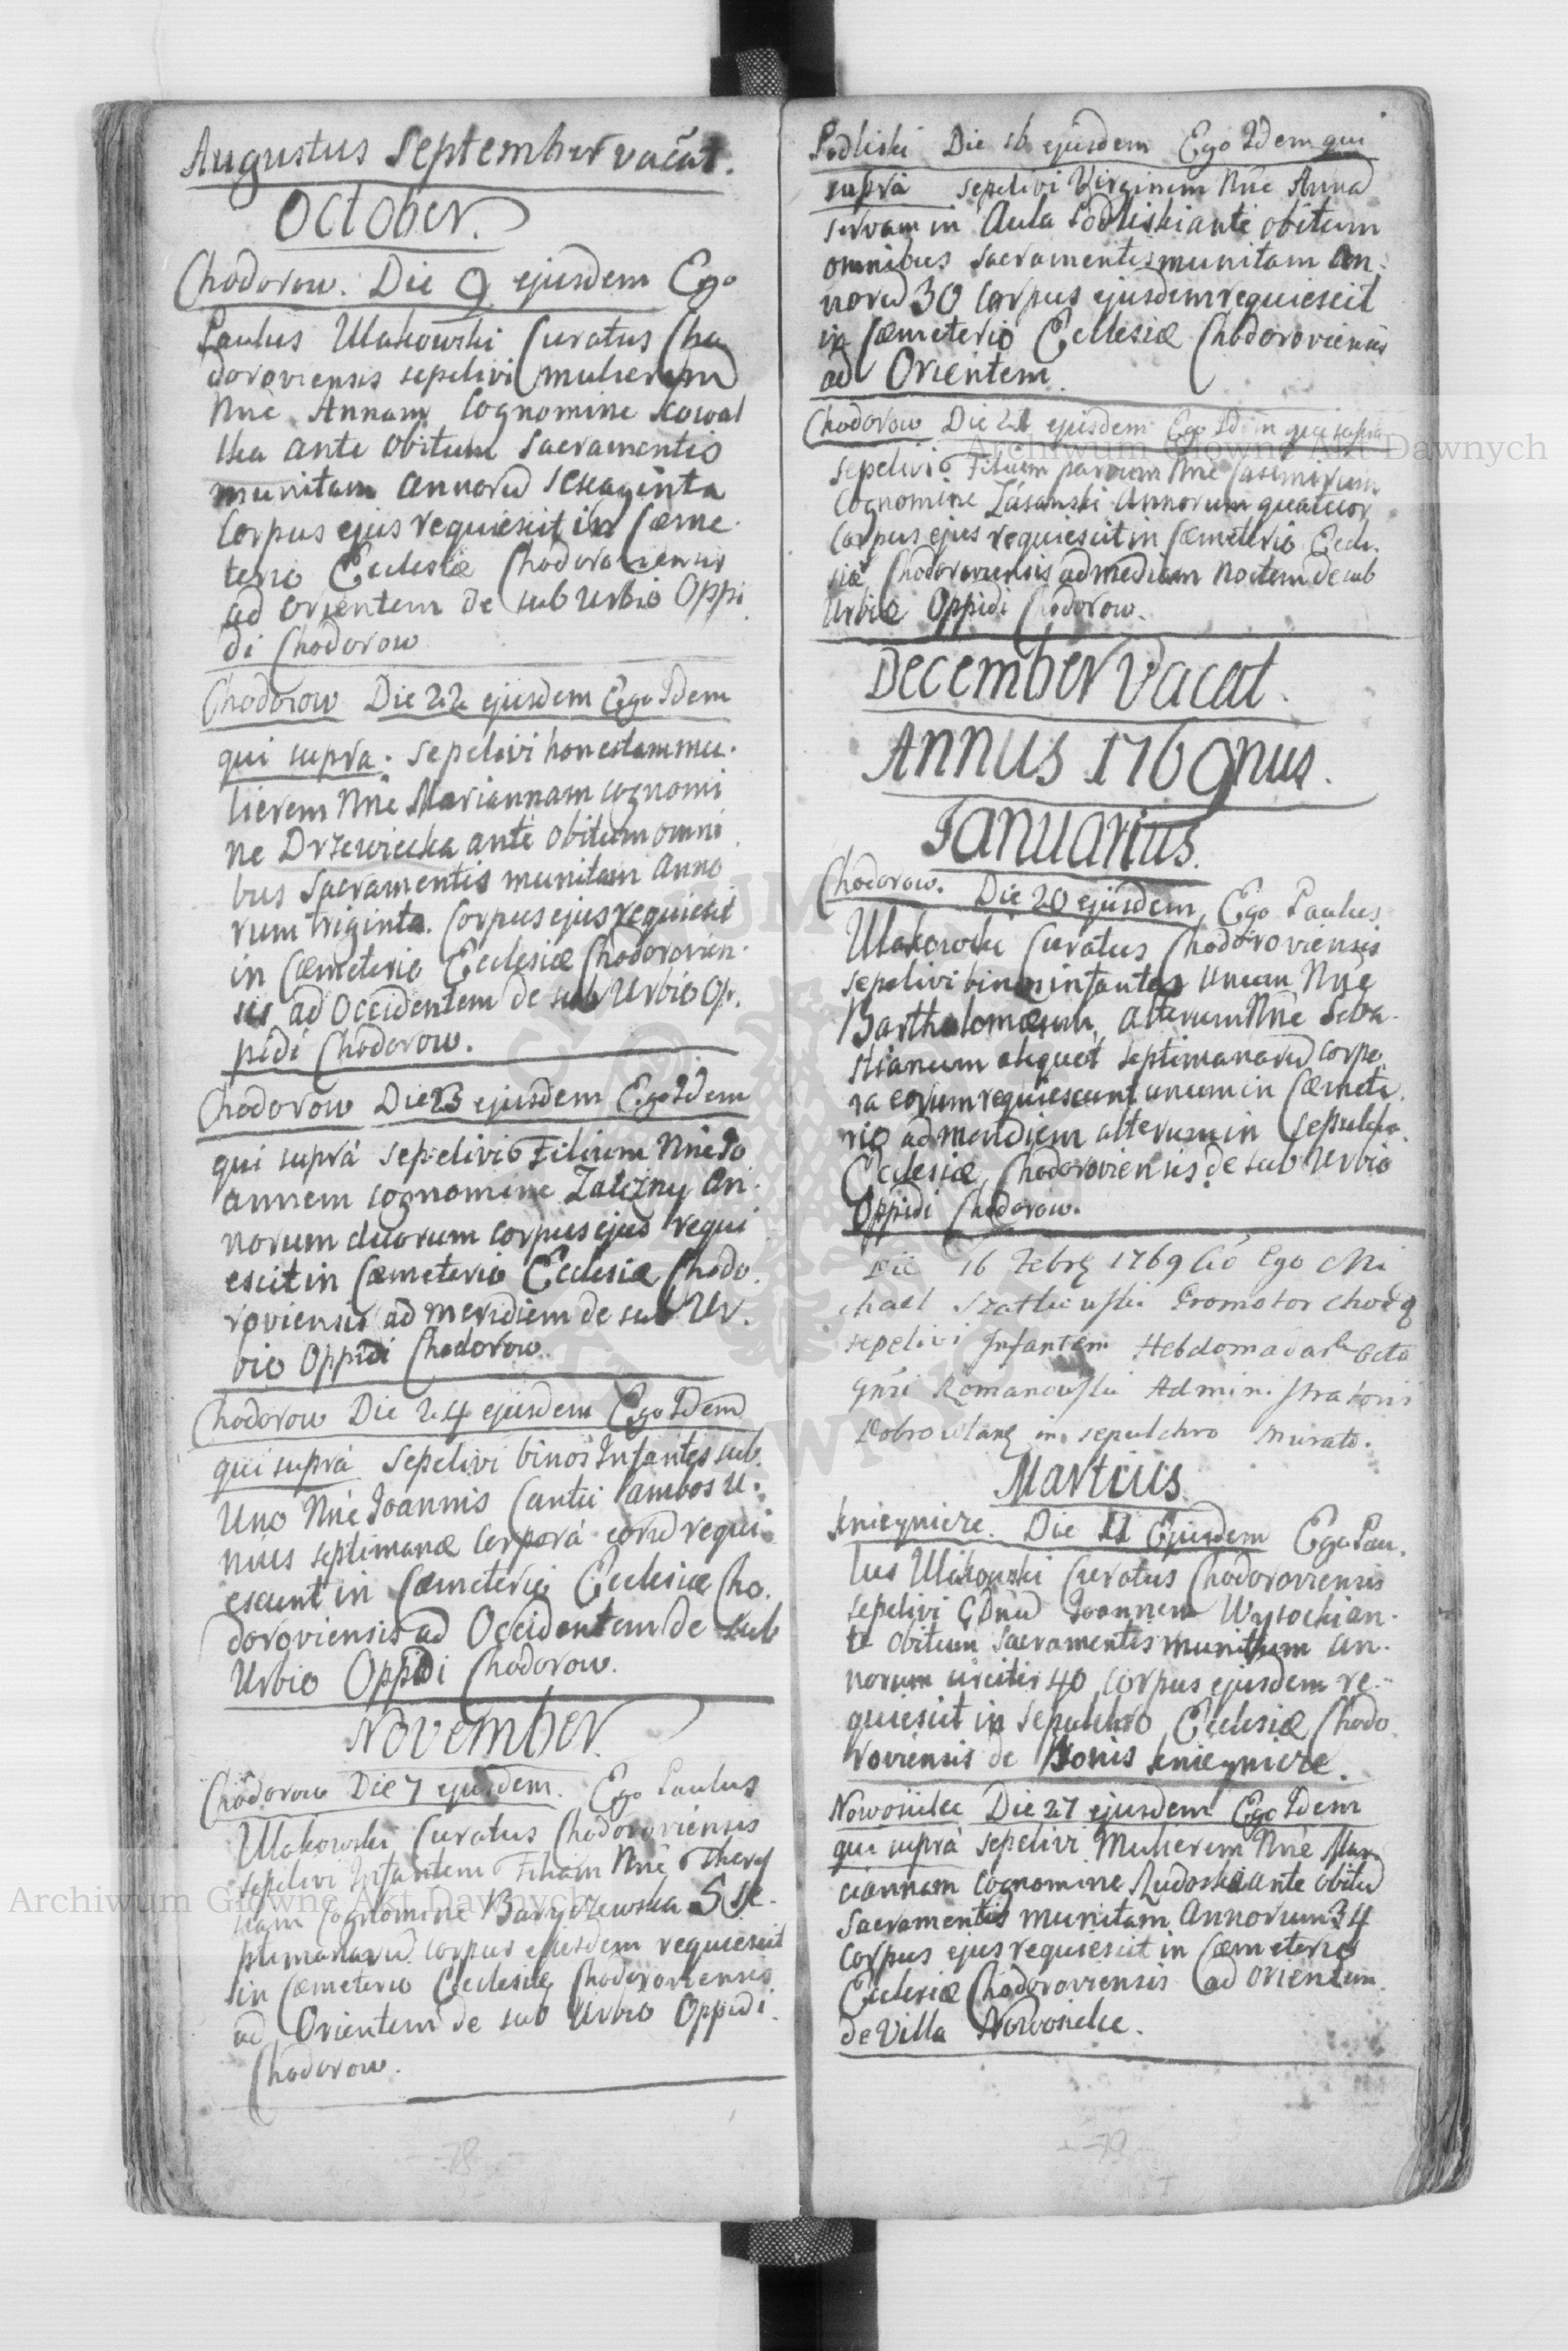 Augustus September vacat.
October.
Chodorow. Die 9 ejusdem Ego
Paulus Ulakowski Curatus Cho
doroviensis sepelivi mulierem
Nne Annam Cognomine Kowal
ska ante obitum Sacramentis
munitam annorū sexaginta
Corpus ejus requiescit in Cæme.
terio Ecclesiæ Chodoroviensis
ad orientem de sub urbio Oppi
di Chodorow
Chodorow Die 22 ejusdem Ego Idem
qui supra. sepelivi honestam mu.
lierem Nne Mariannam cognomi
ne Drzewiecka ante obitum omni
bus Sacramentis munitam anno
rum triginta. Corpus ejus requiescit
in Cæmeterio Ecclesiæ Chodorovien.
sis ad Occidentem de sub Urbio Op.
pidi Chodorow.
Chodorow Die 23 ejusdem Ego Idem
qui suprà sepelivi Filium Nne Jo
annem cognomine Zalizny an.
norum duorum corpus ejus requi
escit in Cæmeterio Ecclesiæ Chodo.
roviensis ad meridiem de sub Ur.
bio Oppidi Chodorow.
Chodorow Die 24 ejusdem Ego Idem
qui suprà sepelivi binos Infantes sub
Uno Nne Joannis Cantii ambos u.
nius septimanæ Corpora eorū requi
escunt in Cæmeterio Ecclesiæ Cho.
doroviensis ad Occidentem de sub
Urbio Oppidi Chodorow.
November.
Chodorow Die 7 ejusdem. Ego Paulus
Ulakowski Curatus Chodoroviensis
sepelivi Infantem Filiam Nne
Cognomine 5 se.
ptimanarū corpus ejusdem requiescit
in Cæmeterio Ecclesiæ Chodoroviensis
ad Orientem de sub Urbio Oppidi.
Chodorow.
78
Podliski Die 16 ejusdem Ego Idem qui
suprà sepelivi Virginem Nne Annā
servam in Aula Podliski ante obitum
omnibus Sacramentis munitam an.
norū 30 Corpus ejusdem requiescit
in Cæmeterio Ecclesiæ Chodoroviensis
ad Orientem.
Chodorow Die 21 ejusdem Ego Idem qui supra
sepelivi Filium parvum Nne Casimirum
Cognomine annorum quatuor
Corpus ejus requiescit in Cæmeterio Eccle.
siæ Chodoroviensis ad mediam noctem de sub
Urbio Oppidi Chodorow.
December Vacat.
Annus 1769nus.
Januarius.
Chodorow. Die 20 ejusdem, Ego Paulus
Ulakowski Curatus Chodoroviensis
sepelivi binos infantes Unum Nne
Bartholomæum, alterum Nne Seba.
stianum aliquot septimanarū Corpo
ra eorum requiescunt unum in Cæmete.
rio ad meridiem alterum in Sepulchro
Ecclesiæ Chodoroviensis de sub Urbio
Oppidi Chodorow.
Die 16 1769 Ego Mi
chael Promotor
sepelivi Infantem Hebdomadar octo
Romanowski Administratoris
in sepulchro murato.
Martius
Knieyniere. Die 11 Ejusdem Ego Pau.
lus Ulakowski Curatus Chodoroviensis
sepelivi Joannem Wysocki an.
te obitum Sacramentis munitum an.
norum circiter 40 Corpus ejusdem re.
quiescit in Sepulchro Ecclesiæ Chodo
roviensis de Bonis Knieyniere.
Nowosielce Die 27 ejusdem Ego Idem
qui suprà sepelivi Mulierem Nne Mar
iannam Cognomine Rudoska ante obitū
Sacramentis munitam Annorum 34
Corpus ejus requiescit in Cæmeterio
Ecclesiæ Chodoroviensis ad Orientem
de Villa Nowosielce.
79
Archiwum Główne Akt Dawnych
Archiwum Główne Akt Dawnych